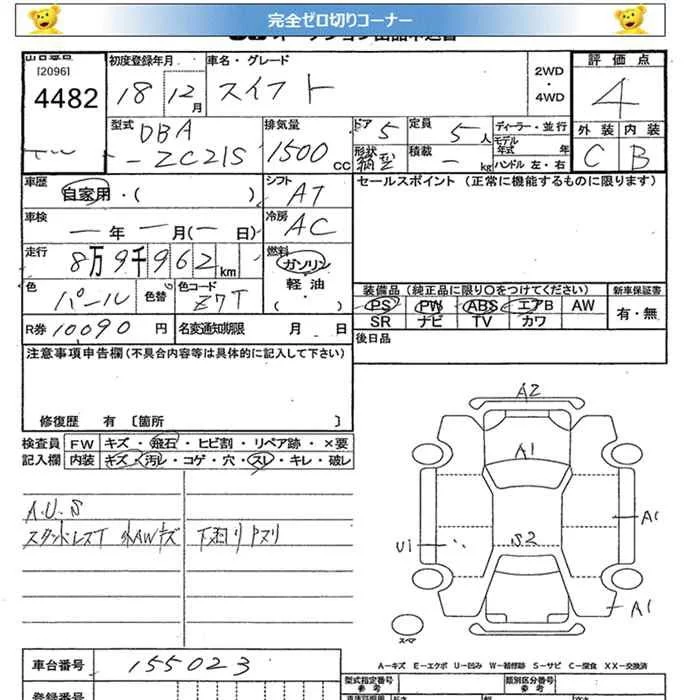 完全ゼロ切りコーナー
[2096]
4482
初度登録年月
18 12月
車名・グレード
スイフト
2WD
・
4WD
評価点
4
外装 内装
C B
型式
DBA
-ZC21S
排気量
1500 CC
ドア 5
定員 5人
形状 箱型
積載 - kg
ディーラー・並行
モデル年式 年
ハンドル 左・右
車歴
自家用・( )
シフト
AT
セールスポイント (正常に機能するものに限ります)
車検
— 年 — 月(— 日)
冷房
AC
走行
8万9千962km
燃料
ガソリン
軽油
・
( )
色
パール
色替
色コード
Z7T
R券 10090 円
名変通知期限 月 日
装備品 (純正品に限り○をつけてください)
PS PW ABS エアB AW
SR ナビ TV カワ
新車保証書
有・無
後日品
注意事項申告欄(不具合内容等は具体的に記入して下さい)
修復歴 有 〔箇所 〕
検査員
記入欄
FW キズ・飛石・ヒビ割・リペア跡・×要
内装 キズ・汚レ・コゲ・穴・スレ・キレ・破レ
A.U.S
スタッドレスT 外AWキズ
下廻りサビ
A2
A1
S2
A1
U1
A1
スペア
A-キズ E-エクボ U-凹み W-補修跡 S-サビ C-腐食 XX-交換済
車台番号
155023
登録番号
型式指定番号
参考
類別区分番号
参考